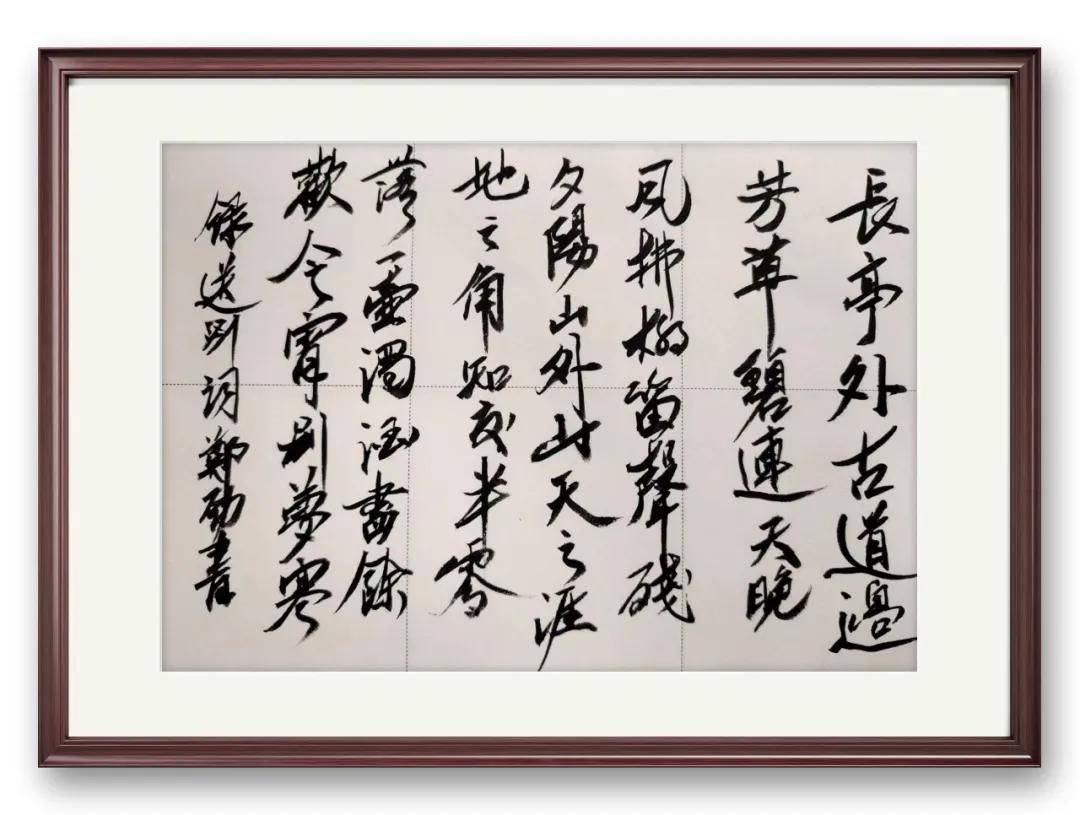 長亭外古道邊
芳草碧連天晚
風拂柳笛聲殘
夕陽山外山天之涯
地之角知交半零
落一壺濁酒盡餘
歡今宵別夢寒
錄送別詞鄭勁書